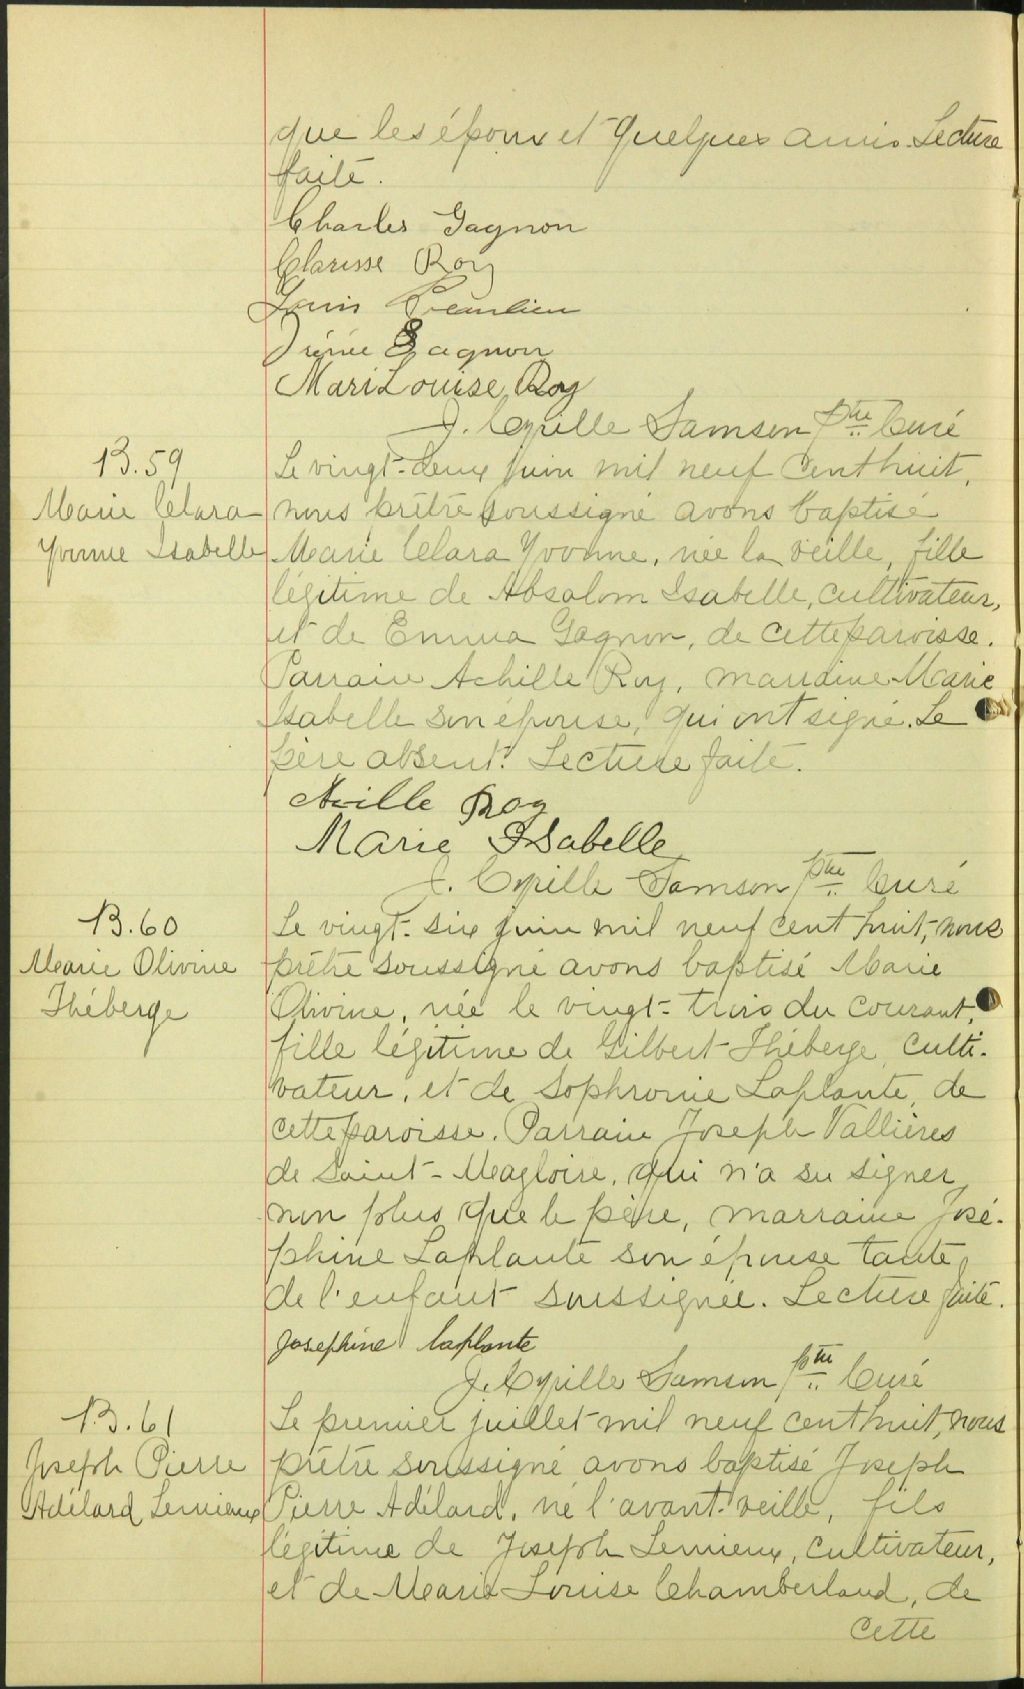 que les époux et quelques amis. Lecture
faite.
Charles Gagnon
Clarisse Roy
Louis Beaulieu
Irénée Gagnon
Mari Louise Roy
J. Cyrille Samson ptre Curé
B. 59
Marie Clara
Yvonne Isabelle
Le vingt-deux juin mil neuf cent huit,
nous prêtre soussigné avons baptisé
Marie Clara Yvonne, née la veille, fille
légitime de Absalom Isabelle, cultivateur,
et de Emma Gagnon, de cette paroisse.
Parrain Achille Roy, marraine Marie
Isabelle son épouse, qui ont signé. Le
père absent. Lecture faite.
Acille Roy
Marie Isabelle
J. Cyrille Samson ptre Curé
B. 60
Marie Olivine
Théberge
Le vingt-six juin mil neuf cent huit, nous
prêtre soussigné avons baptisé Marie
Olivine, née le vingt-trois du courant,
fille légitime de Gilbert Théberge, culti-
vateur, et de Sophronie Laplante, de
cette paroisse. Parrain Joseph Vallières
de Saint-Magloire, qui n'a su signer
non plus que le père, marraine José-
phine Laplante son épouse tante
de l'enfant soussignée. Lecture faite.
Josephine laplante
J. Cyrille Samson ptre Curé
B. 61
Joseph Pierre
Adélard Lemieux
Le premier juillet mil neuf cent huit, nous
prêtre soussigné avons baptisé Joseph
Pierre Adélard, né l'avant-veille, fils
légitime de Joseph Lemieux, cultivateur,
et de Marie Louise Chamberland, de
cette